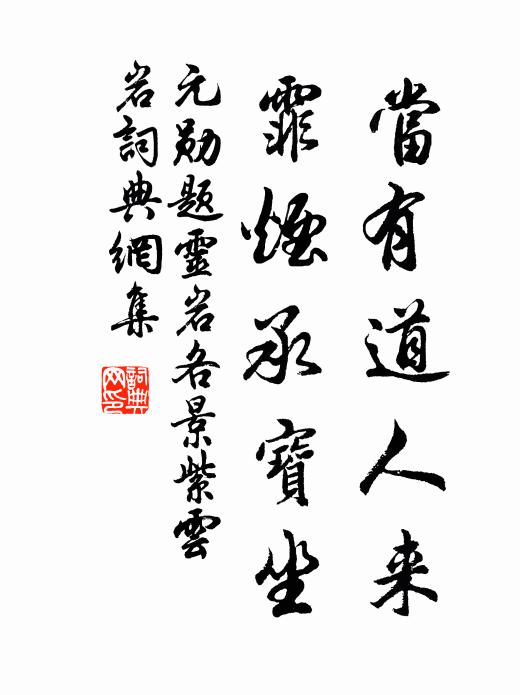 當有道人来
霏煙承寶坐
元勛題靈岩各景紫雲
岩詞典網集
詞典
网印